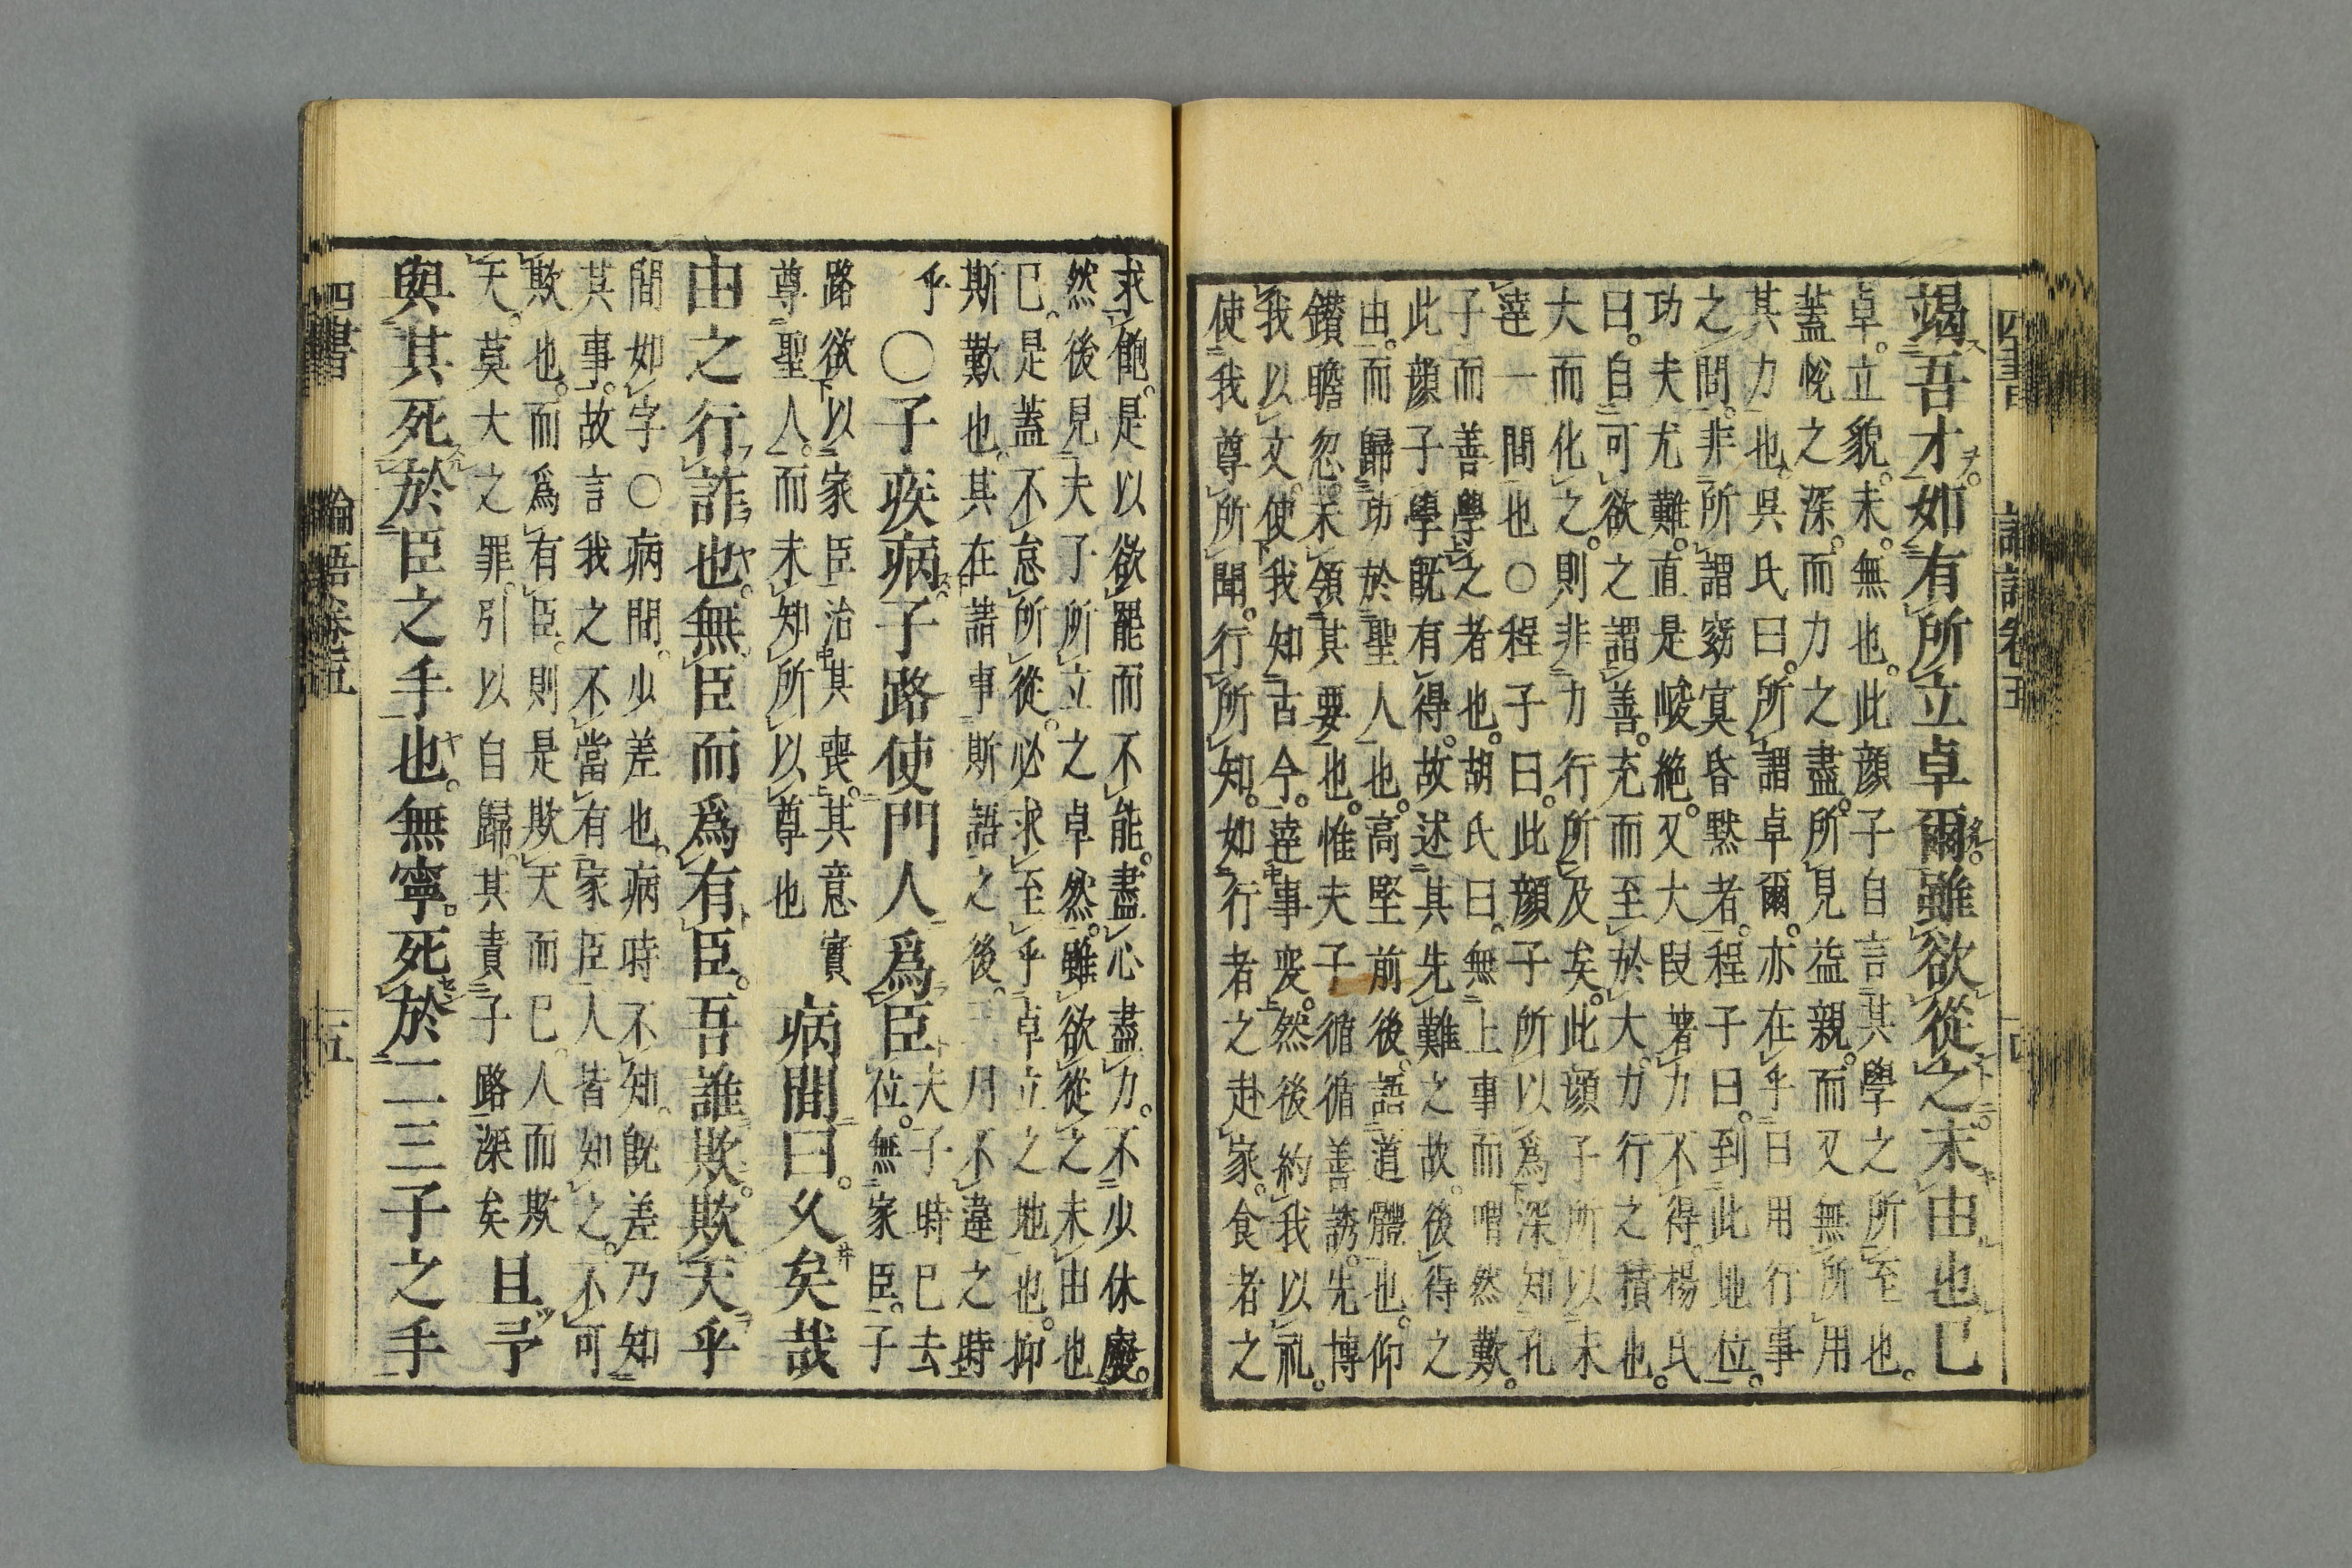 竭吾才如有所立卓爾雖欲從之末由也已
卓立貌末無也此顔子自言其學之所至也
蓋悅之深而力之盡所見益親而又無所用
其力也呉氏曰所謂卓爾亦在乎日用行事
之間非所謂窈冥昏黙者程子曰到此地位
功夫尤難直是峻絶又大段著力不得楊氏
曰自可欲之謂善充而至於大力行之積也
大而化之則非力行所及矣此顔子所以未
達一間也○程子曰此顔子所以爲深知孔
子而善學之者也胡氏曰無上事而喟然歎
此顔子學既有得故述其先難之故後得之
由而歸功於聖人也高堅前後語道體也仰
鑽瞻忽未領其要也惟夫子循循善誘先博
我以文使我知古今達事変然後約我以礼
使我尊所聞行所知如行者之赴家食者之
求飽是以欲罷而不能盡心盡力不少休廢
然後見夫子所立之卓然雖欲從之末由也
已是蓋不怠所從必求至乎卓立之地也抑
斯歎也其在請事斯語之後三月不違之時
乎○子疾病子路使門人爲臣夫子時已去
位無家臣子
路欲以家臣治其喪其意實
尊聖人而未知所以尊也病間曰久矣哉
由之行詐也無臣而爲有臣吾誰欺欺天乎
間如字○病間少差也病時不知既差乃知
其事故言我之不當有家臣人皆知之不可
欺也而爲有臣則是欺天而已人而欺
天莫大之罪引以自歸其責子路深矣且予
與其死於臣之手也無寧死於二三子之手
四書 論語卷五 十五